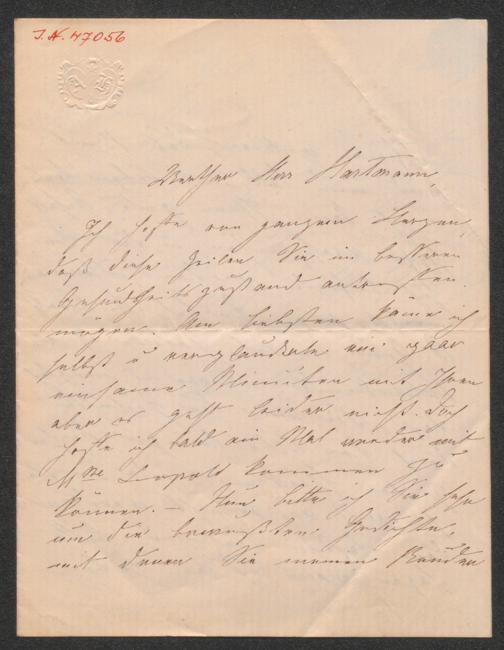 I. N. 47056
Werther Herr Hartmann,
Ich hoffe von ganzem Herzen,
daß diese Zeilen Sie im besseren
Gesundheitszustand antreffen
mögen. Am liebsten käme ich
selbst u verplauderte ein paar
einsame Minuten mit Ihnen
aber es geht leider nicht. Doch
hoffe ich bald ein Mal wieder mit
Leopold kommen zu
können. – Nun bitte ich Sie sehr
um die bewußten Gedichte,
mit denen Sie meinen